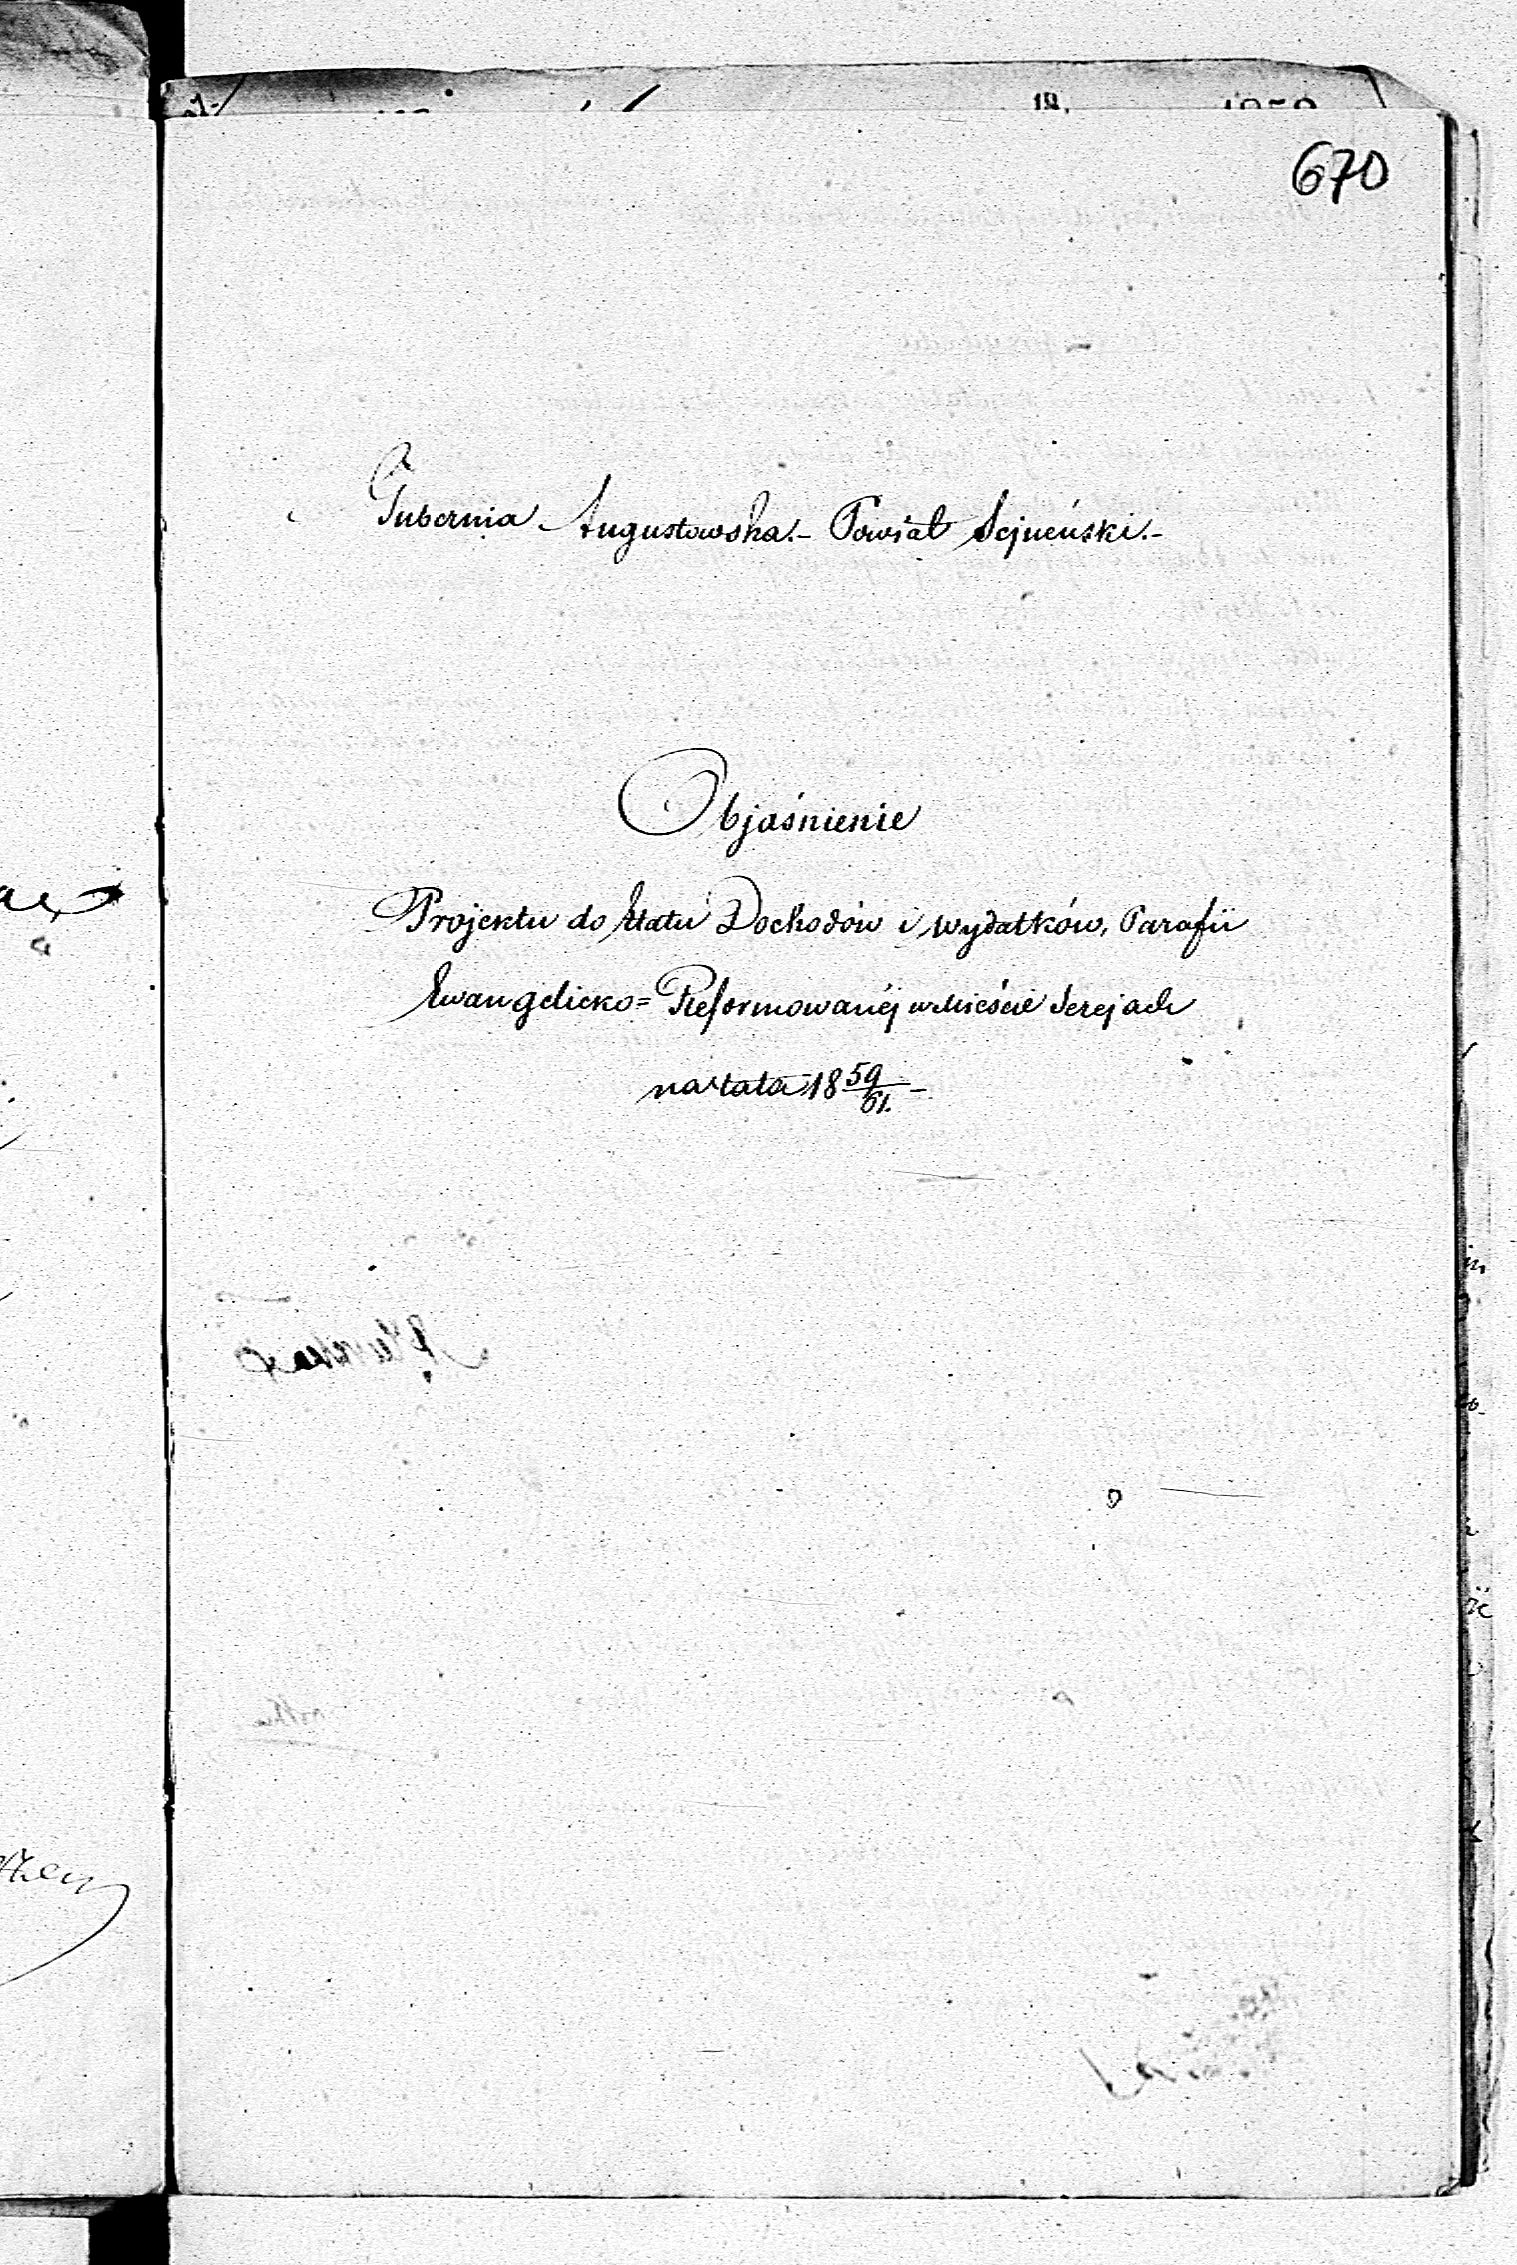 670
Gubernia Augustowska.- Powiat Sejneński.-
Objaśnienie
Projektu do Etatu Dochodów i wydatków, Parafii
Ewangelicko= Reformowanéj w Mieście Serejach
na lata 18 59/61.-